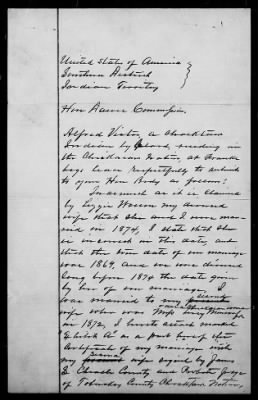 United States of America
Southern District
Indian Territory
Hon Dawes Commission.
Alfred Victor, a Chocktaw
Indian by blood, residing in
the Chickasaw Nation, at
begs leave respectfully to submit
to your Hon Body as follows:
Inasmuch as it is claimed
by Lizzie Wilson my divorced
wife that she and I were mar-
ried in 1874, I state that she
is incorrect on this date, but
that the true date of our marriage
was 1869, and we were divorced
long before 1874 the date given
by her of our marriage. I
was married to my second
wife who was Miss
in 1872, I hereto attach marked
Exhibit "A" as a part hereof the
Certificate of my marriage with
my second wife signed by James
County and Probate Judge
of County Chocktaw Nation,